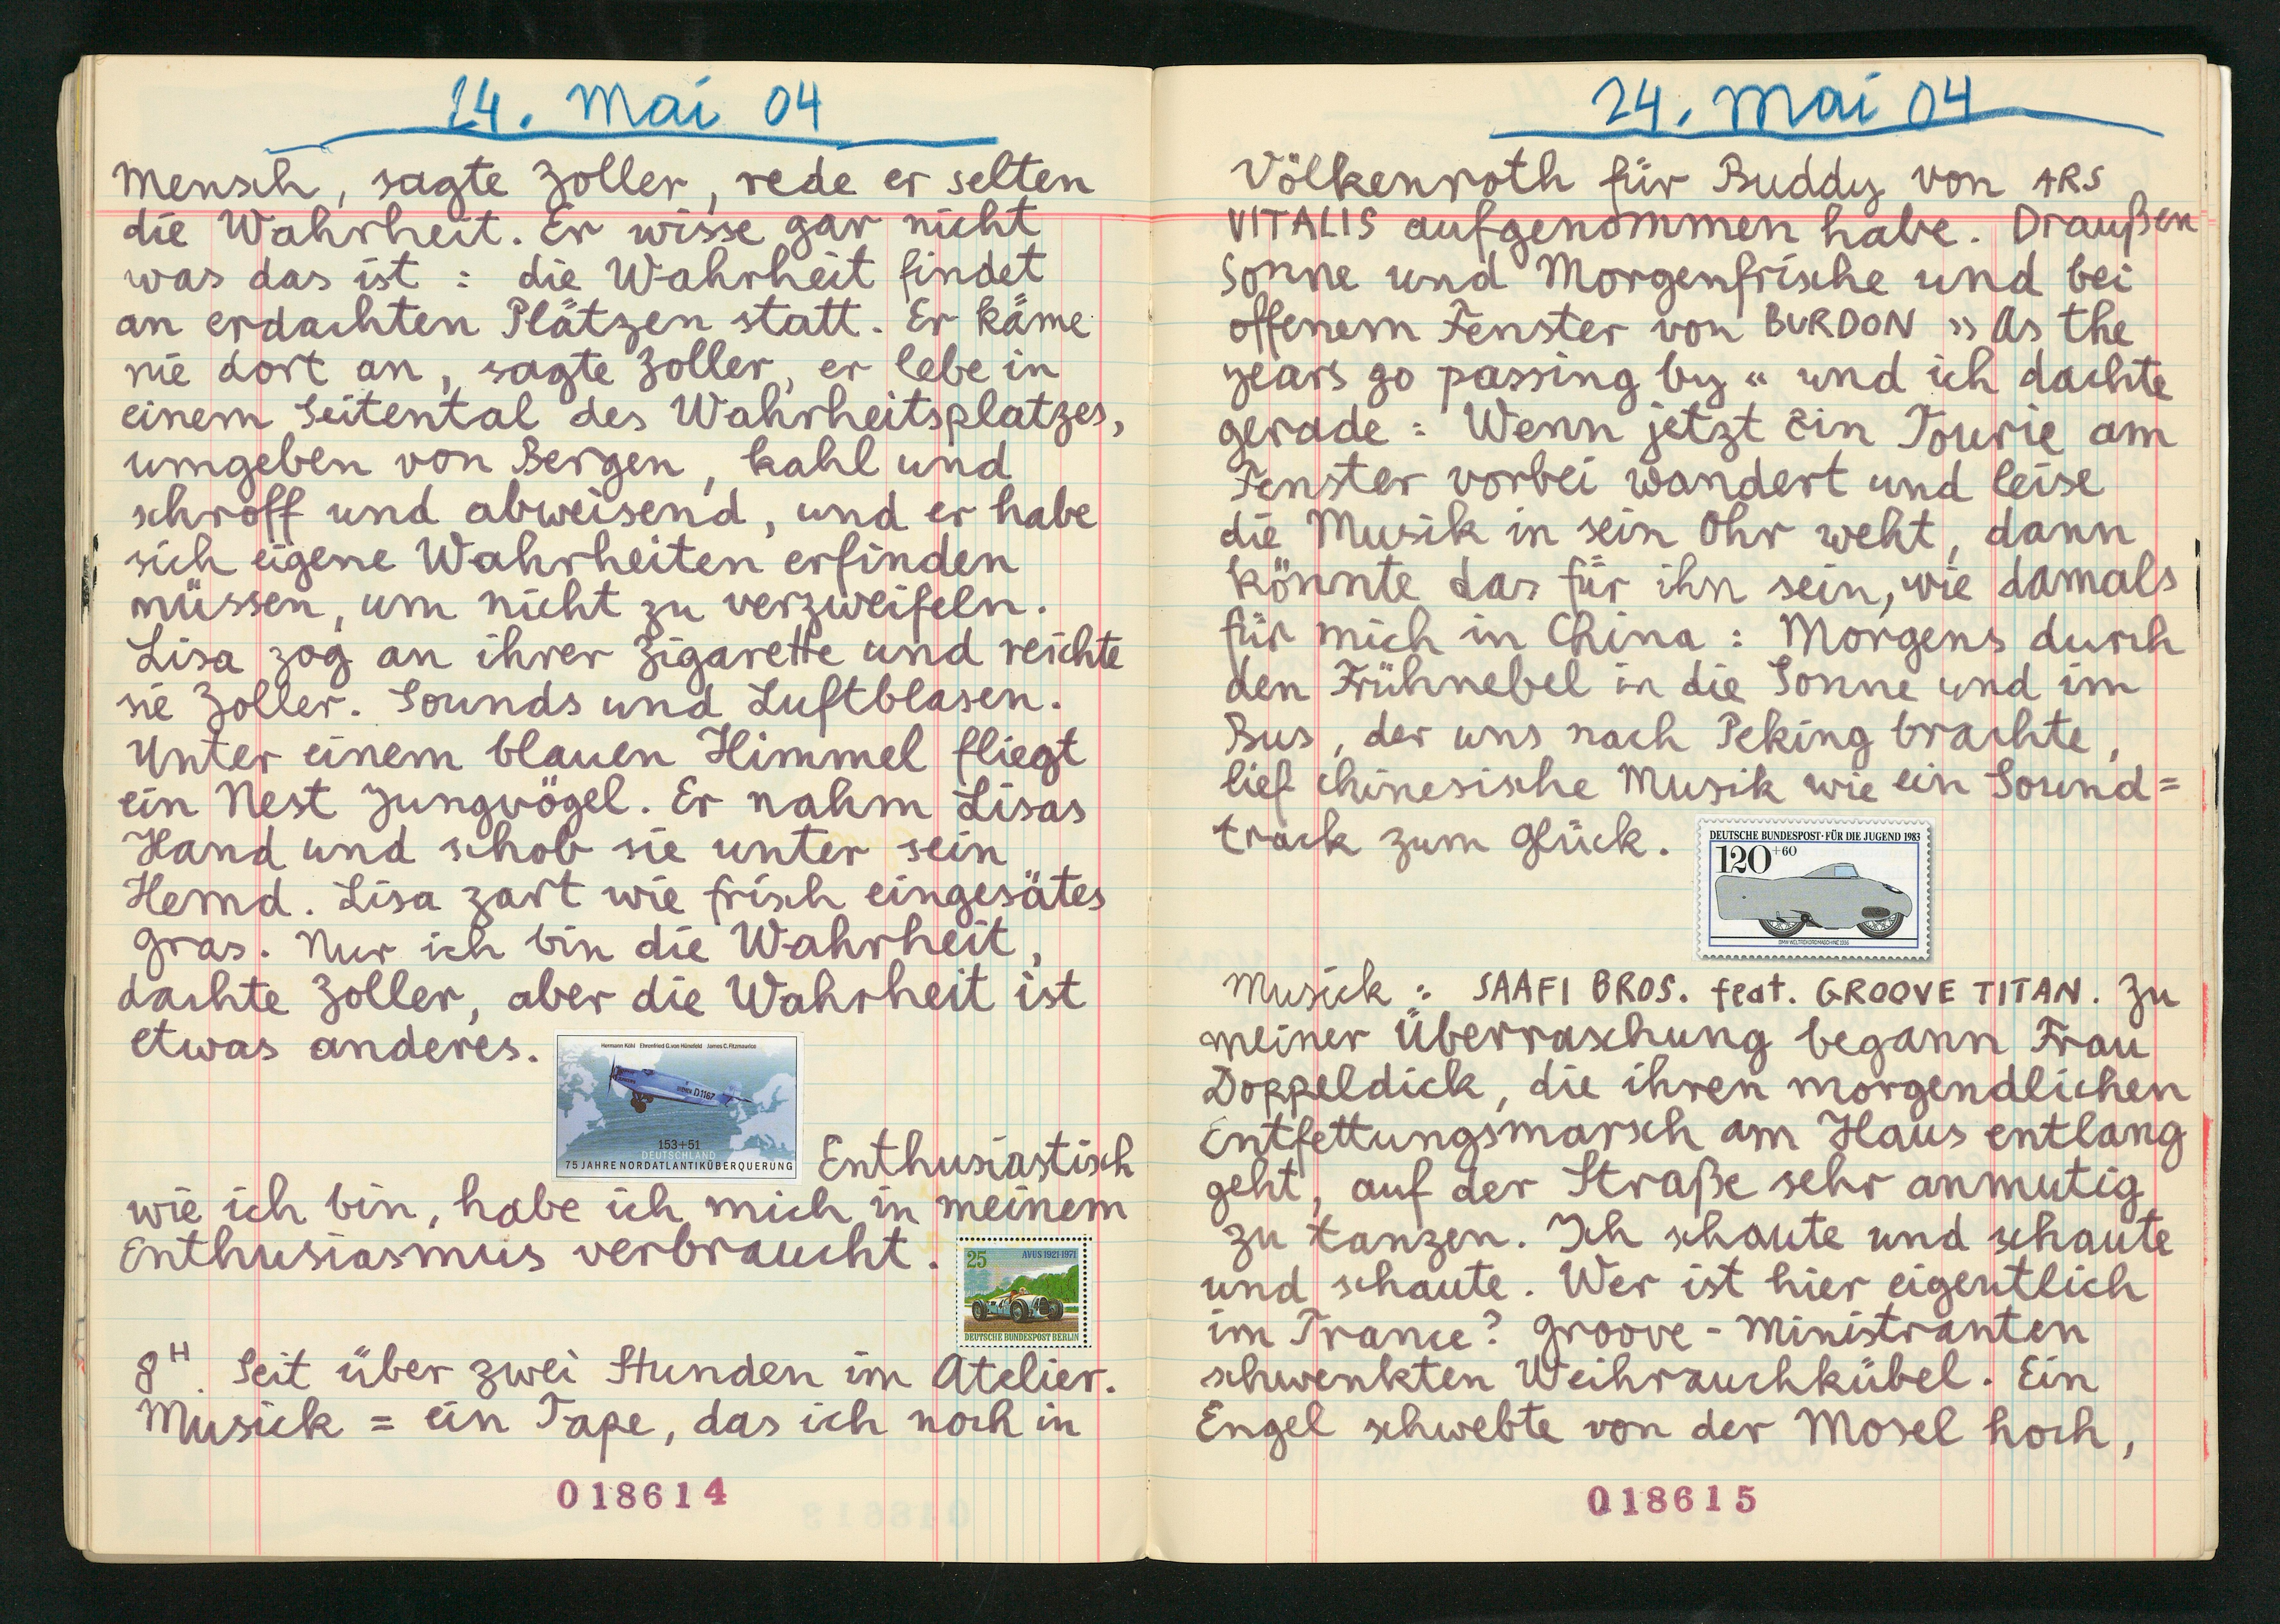 24. Mai 04
Mensch, sagte Zoller, rede er selten
die Wahrheit. Er wisse gar nicht
was das ist : die Wahrheit findet
an erdachten Plätzen statt. Er käme
nie dort an, sagte Zoller, er lebe in
einem Seitental des Wahrheitsplatzes,
umgeben von Bergen, kahl und
schroff und abweisend, und er habe
sich eigene Wahrheiten erfinden
müssen, um nicht zu verzweifeln.
Lisa zog an ihrer Zigarette und reichte
sie Zoller. Sounds und Luftblasen.
Unter einem blauen Himmel fliegt
ein Nest Jungvögel. Er nahm Lisas
Hand und schob sie unter sein
Hemd. Lisa zart wie frisch eingesätes
Gras. Nur ich bin die Wahrheit,
dachte Zoller, aber die Wahrheit ist
etwas anderes.
Hermann Köhl Ehrenfried G. von Hünefeld James C. Fitzmaurice
D1167
153+51
DEUTSCHLAND
75 JAHRE NORDATLANTIKÜBERQUERUNG
Enthusiastisch
wie ich bin, habe ich mich in meinem
Enthusiasmus verbraucht.
25 AVUS 1921-1971
DEUTSCHE BUNDESPOST BERLIN
8H. Seit über zwei Stunden im Atelier.
Musick = ein Tape, das ich noch in
018614
24. Mai 04
Völkenroth für Buddy von ARS
VITALIS aufgenommen habe. Draußen
Sonne und Morgenfrische und bei
offenem Fenster von BURDON »As the
years go passing by« und ich dachte
gerade : Wenn jetzt ein Tourie am
Fenster vorbei wandert und leise
die Musik in sein Ohr weht, dann
könnte das für ihn sein, wie damals
für mich in China : Morgens durch
den Frühnebel in die Sonne und im
Bus, der uns nach Peking brachte,
lief chinesische Musik wie ein Sound=
track zum Glück.
DEUTSCHE BUNDESPOST · FÜR DIE JUGEND 1983
120+60
BMW WELTREKORDMASCHINE 1936
Musick : SAAFI BROS. feat. GROOVE TITAN. Zu
meiner Überraschung begann Frau
Doppeldick, die ihren morgendlichen
Entfettungsmarsch am Haus entlang
geht, auf der Straße sehr anmutig
zu tanzen. Ich schaute und schaute
und schaute. Wer ist hier eigentlich
im Trance? Groove-Ministranten
schwenkten Weihrauchkübel. Ein
Engel schwebte von der Mosel hoch,
018615